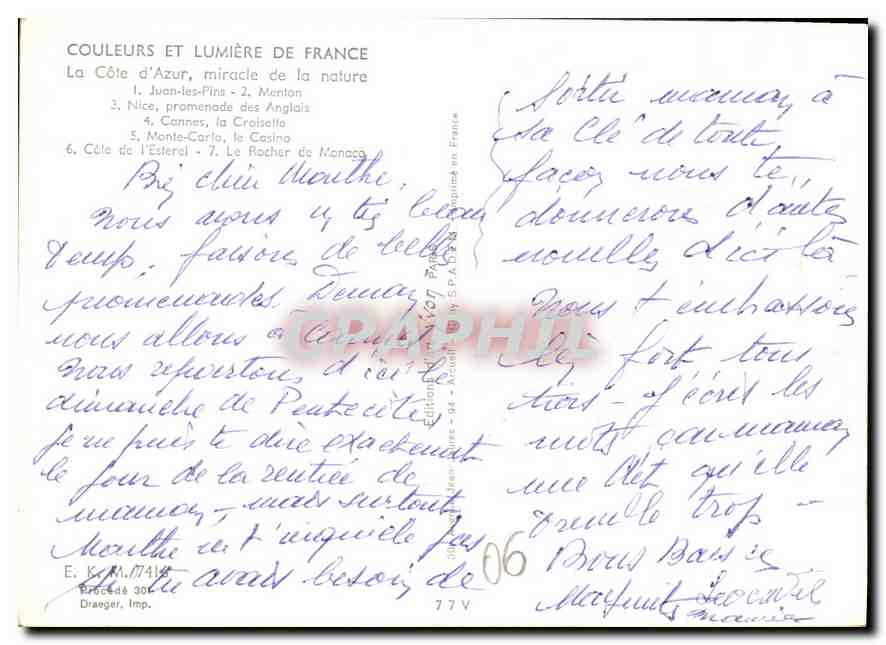 COULEURS ET LUMIÈRE DE FRANCE
La Côte d'Azur, miracle de la nature
1. Juan-les-Pins - 2. Menton
3. Nice, promenade des Anglais
4. Cannes, la Croisette
5. Monte-Carlo, le Casino
6. Côte de l'Esterel - 7. Le Rocher de Monaco
Marthe,
Nous avons très beau
Temps, faisons de belle
promenades. Demain
nous allons à
Nous repartons d'ici le
dimanche de Pentecôte,
je ne puis te dire exactement
le jour de la rentrée de
maman - mais surtout
Marthe ne t'inquiète pas
Si tu avais besoin de
E. K. M./7418
Procédé 301
Draeger, Imp.
77V
Editions d'Art Yvon PARIS
94 - Arcueil by S.P.A.D.E.M. Imprimé en France
CPAPHIL
06
Sortir maman à
sa clé de toute
façon nous te
donnerons d'autres
nouvelles d'ici là
Nous t'embrassons
bien fort, tous
trois - J'écris les
mots, car maman
qu'elle
tremble trop -
Bons Baisers